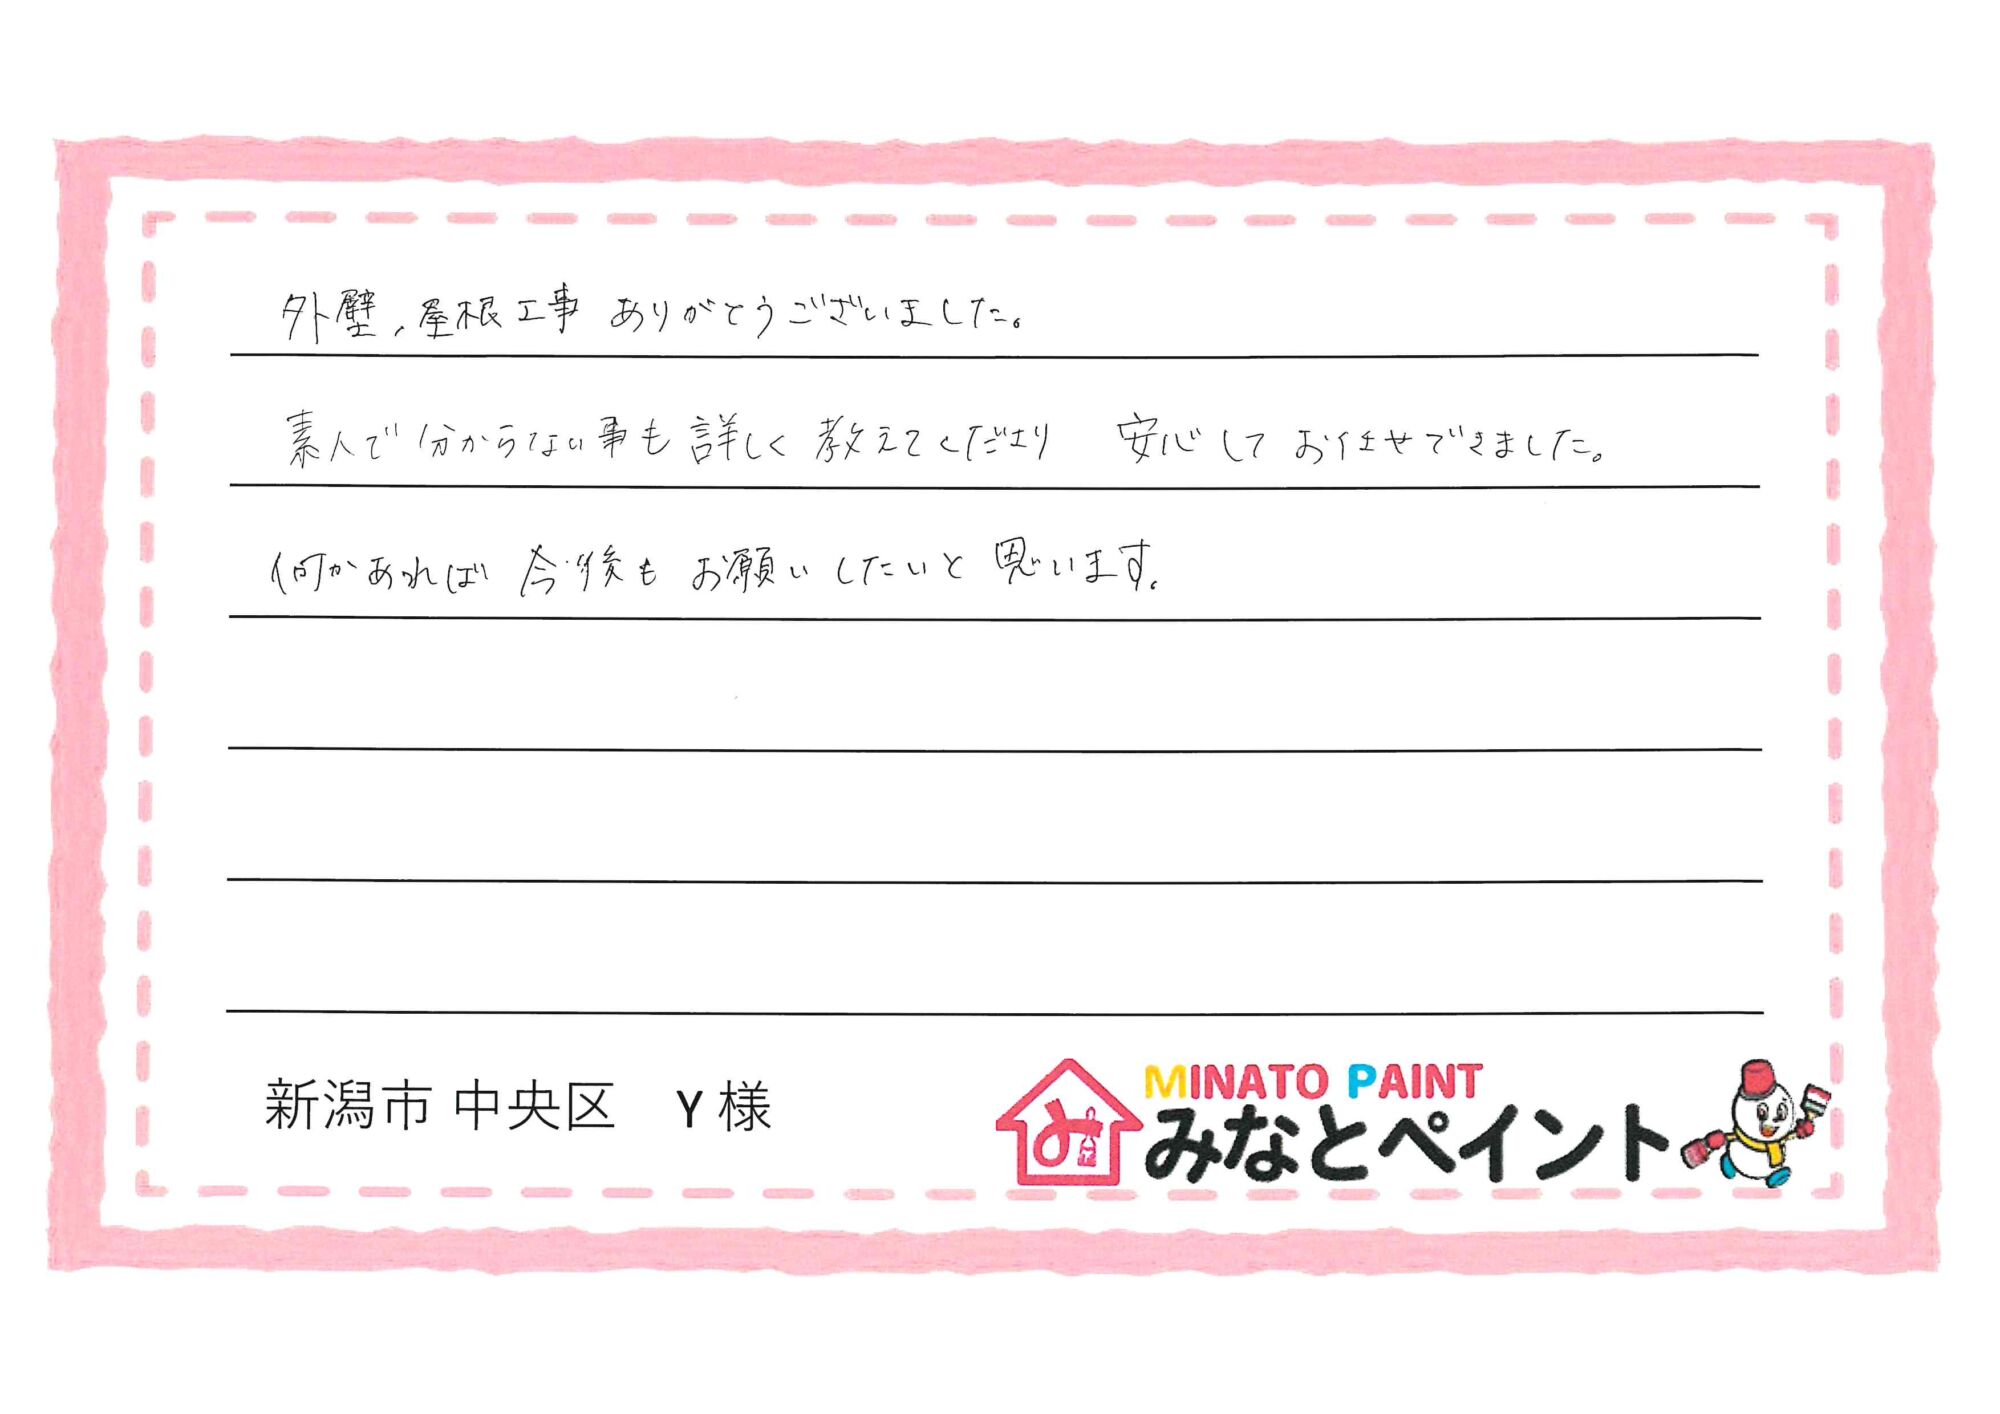 外壁、屋根工事 ありがとうございました。
素人で分からない事も詳しく教えてくださり 安心してお任せできました。
何かあれば 今後も お願いしたいと思います。
新潟市 中央区 Y 様
MINATO PAINT
みなとペイント